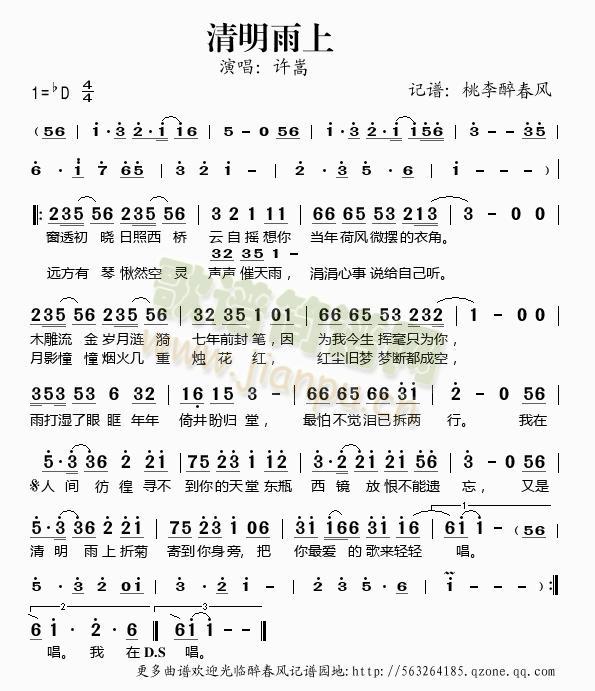 清明雨上
演唱：许嵩
1=♭D 4/4 记谱：桃李醉春风
( 56 | i · 3 2 · i i 16 | 5 - 0 56 | i · 3 2 · i i 56 | 3 - - 35 |
6 · i 7 65 | 3 2 1 - | 2 · 3 2 · 5 | 2 · 3 5 · 6 | 1 - - - ) |
‖: 235 56 235 56 | 3 2 1 11 | 66 65 53 213 | 3 - 0 0 |
窗透初 晓 日照西 桥 云 自 摇 想你 当年 荷风 微摆 的衣角。
32 35 1
远方有 琴 愀然空 灵 声声 催天雨， 涓涓 心事 说给 自己听。
235 56 235 56 | 32 35 1 01 | 66 65 53 232 | 1 - 0 0 |
木雕流 金 岁月涟 漪 七年 前封 笔，因 为我 今生 挥毫 只为你，
月影憧 憧 烟火几 重 烛 花 红， 红尘 旧梦 梦断 都成空，
353 53 6 32 | 16 15 3 - | 66 65 66 31 | 2 - 0 56 |
雨打湿了眼 眶 年年 倚井盼归 堂， 最怕 不觉 泪已 拆两 行。 我在
5 · 3 36 2 21 | 75 23 1 12 | 3 · 2 21 21 56 | 3 - 0 56 |
𝄋人 间 彷 徨 寻不 到你的天堂 东瓶 西 镜 放 恨不能遗 忘， 又是
5 · 3 36 2 21 | 75 23 1 06 | 31 166 31 21 | 61 1 - (56 |
1
清 明 雨上折菊 寄到你身旁，把 你最爱 的 歌来轻轻 唱。
5 · 3 2 01 | 3 · 5 2 · 3 | 5 · 6 2 · 6 | i - - - ) :‖
2 3
6 1 · 2 · 6 :‖ 61 1 - - ‖
唱。 我 在 D.S 唱。
更多曲谱欢迎光临醉春风记谱园地:http://563264185.qzone.qq.com
歌谱简谱网
www.jianpu.cn